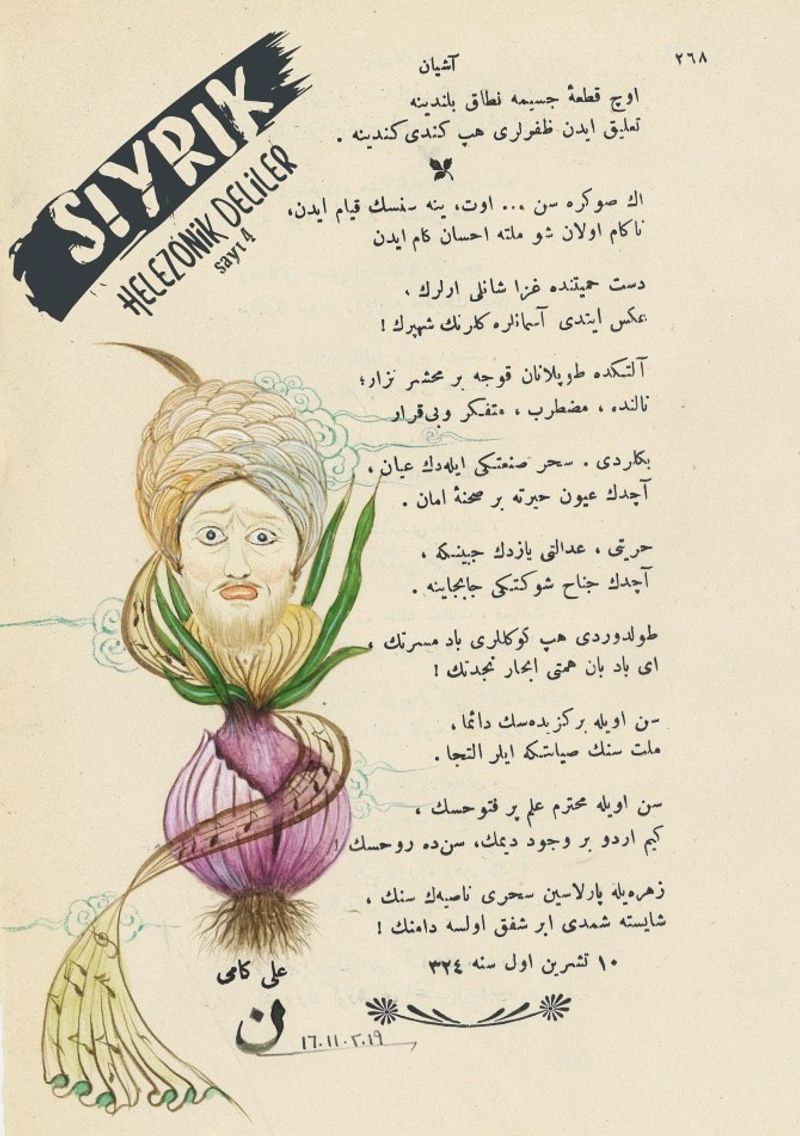 SIYRIK
HELEZONİK DELİLER
sayı 4
٢٦٨
آشیان
اوچ قطعهٔ جسیمه نطاق بلندینه
تعلیق ایدن ظفرلری هپ کندی کندینه .
اك صوکره سن ... اوت، ینه سنسك قیام ایدن،
ناکام اولان شو ملته احسان کام ایدن
دست حمیتنده غزا شانلی ارلرك ،
عکس ایتدی آسمانلره کلرنك شهپرك !
آلتکده طوپلانان قوجه بر محشر نزار؛
نالنده ، مضطرب ، متفکر وبی قرار
بکلردی . سحر صنعتکی ایلەدك عیان ،
آچدك عیون حیرته بر صحنهٔ امان .
حریتی ، عدالتی یازدك جبینکه ،
آچدك جناح شوکتکی جابجاینه .
طولدوردی هپ کوکللری باد مسرتك ،
ای باد بان همتی ابحار نجدتك !
سن اویله برکزیده‌سك دائما ،
ملت سنك صیانتکه ایلر التجا .
سن اویله محترم علم پر فتوحسك ،
کیم اردو بر وجود دیمك، سن‌ده روحسك !
زهره‌یله پارلاسین سحری ناصیه‌ك سنك ،
شایسته شمدی ابر شفق اولسه دامنك !
١٠ تشرین اول سنه ٣٢٤
علی کامی
ن
١٦.١١.٢.١٩